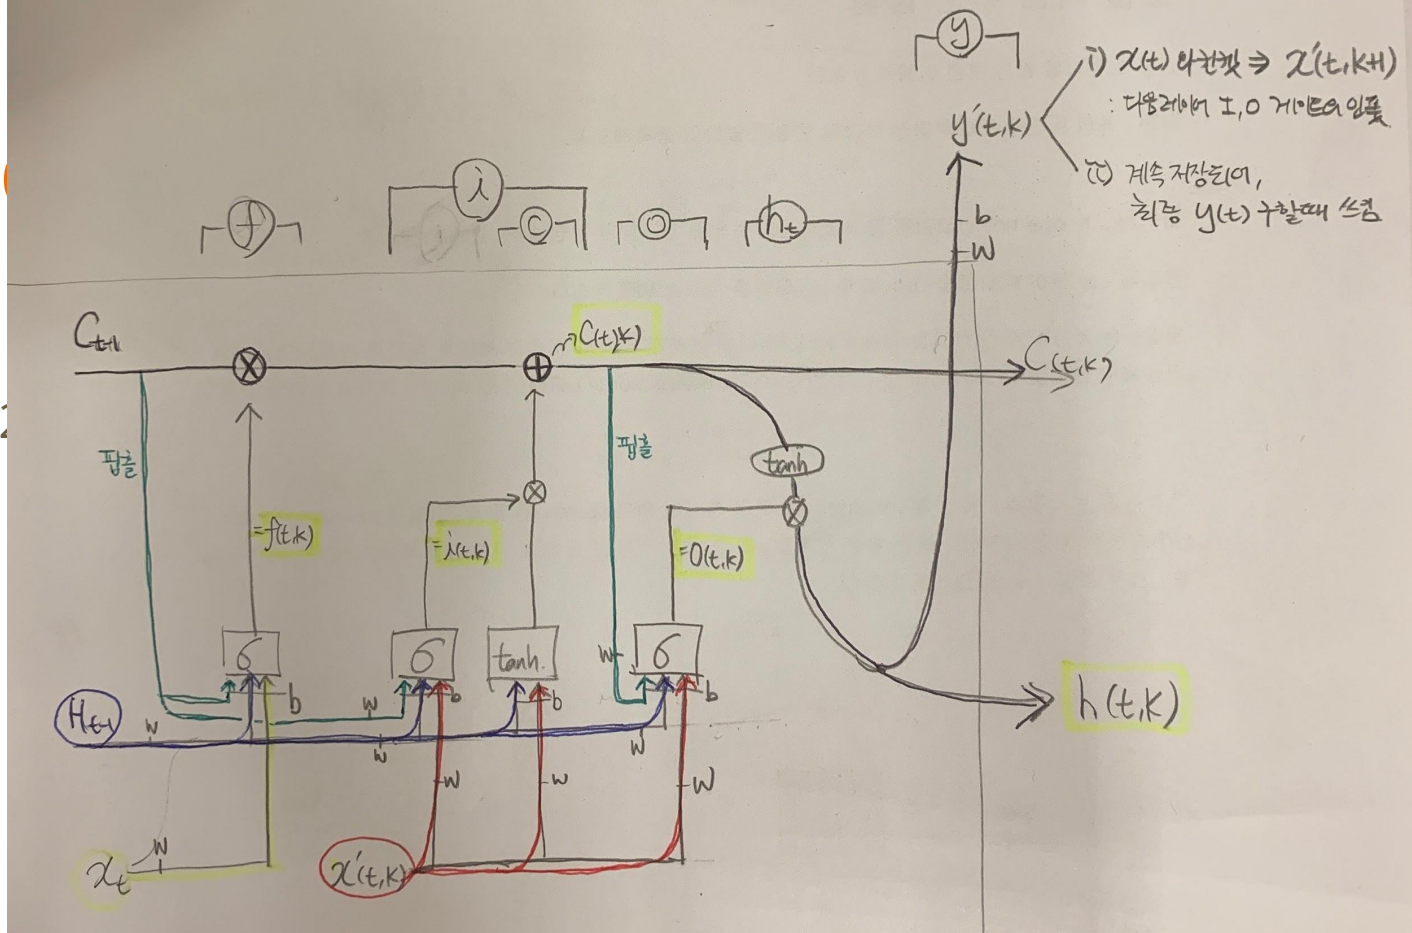 y
i) x(t) 와 칸캣 ⇒ x'(t,k+1)
: 다음 레이어 I,O 게이트의 인풋
y'(t,k)
ii) 계속 저장되어,
최종 y(t) 구할때 쓰임
b
W
f
i
C
O
ht
Ct-1
C(t,k)
C(t,k)
핍홀
핍홀
tanh
=f(t,k)
=i(t,k)
=O(t,k)
σ
σ
tanh.
W
σ
b
b
b
b
h(t,k)
Ht-1
W
W
W
W
W
W
W
W
xt
x'(t,k)